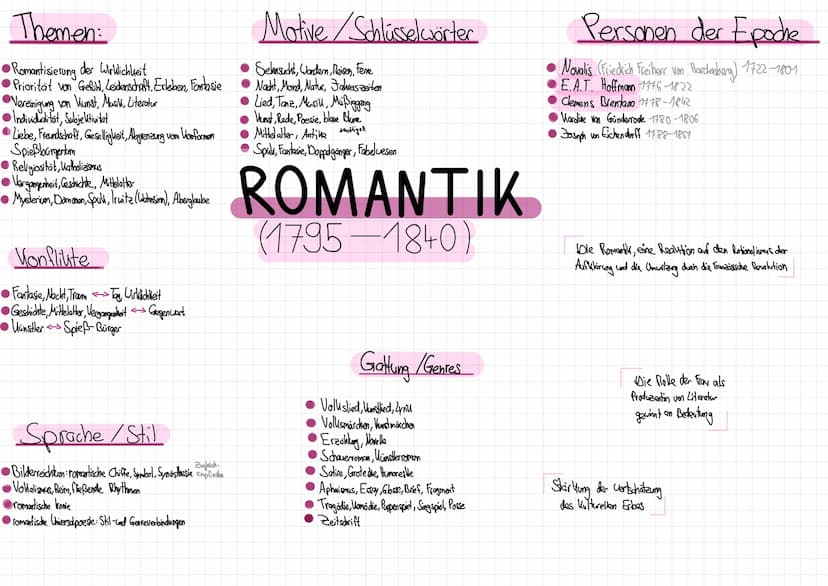 Themen:
• Romantisierung der Wirklichkeit
• Priorität von Gefühl, Leidenschaft, Erleben, Fantasie
• Vereinigung von Kunst, Musik, Literatur
• Individualität, Subjektivität
• Liebe, Freundschaft, Geselligkeit, Abgrenzung vom konformen
Spießbürgertum
• Religiosität, Katholizismus
• Vergangenheit, Geschichte, Mittelalter
• Mysterium, Dämonen, Spuk, (Wahnsinn), Aberglaube
Motive/Schlüsselwörter
• Sehnsucht, Wandern, Reisen, Ferne
• Nacht, Mond, Natur, Jahreszeiten
• Lied, Tanz, Musik, Müßiggang
• Kunst, Rede, Poesie, blaue Blume
• Mittelalter, Antike
• Spuk, Fantasie, Doppelgänger, Fabelwesen
Personen der Epoche
• Novalis (Friedrich Freiherr von Hardenberg) 1722-1801
• E.A.T. Hoffmann 1776-1822
• Clemens Brentano 1778-1842
• Karoline von Günderrode 1780-1806
• Joseph von Eichendorff
ROMANTIK
(1795-1840)
Konflikte
• Fantasie, Nacht, Traum ↔ Tag, Wirklichkeit
• Geschichte, Mittelalter, Vergangenheit ↔ Gegenwart
• Künstler ↔ Spieß-Bürger
Die Romantik, eine Reaktion auf den Rationalismus der
Aufklärung und die Umwälzung durch die französische Revolution
Gattung/Genres
• Volkslied, Kunstlied, Lyrik
• Volksmärchen, Kunstmärchen
• Erzählung, Novelle
• Schauerroman, Künstlerroman
• Satire, Groteske, Humoreske
• Aphorismus, Essay, Glosse, Brief, Fragment
• Tragödie, Komödie, Puppenspiel, Singspiel, Posse
• Zeitschrift
Die Rolle der Frau als
Produzentin von Literatur
gewinnt an Bedeutung
Sprache/Stil
• Bilderreichtum: romantische Chiffre, Symbol, Synästhesie
• Vokalismus, Reim, fließende Rhythmen
• romantische Ironie
• romantische Universalpoesie: Stil- und Genreverbindungen
Stärkung der Wertschätzung
des kulturellen Erbes